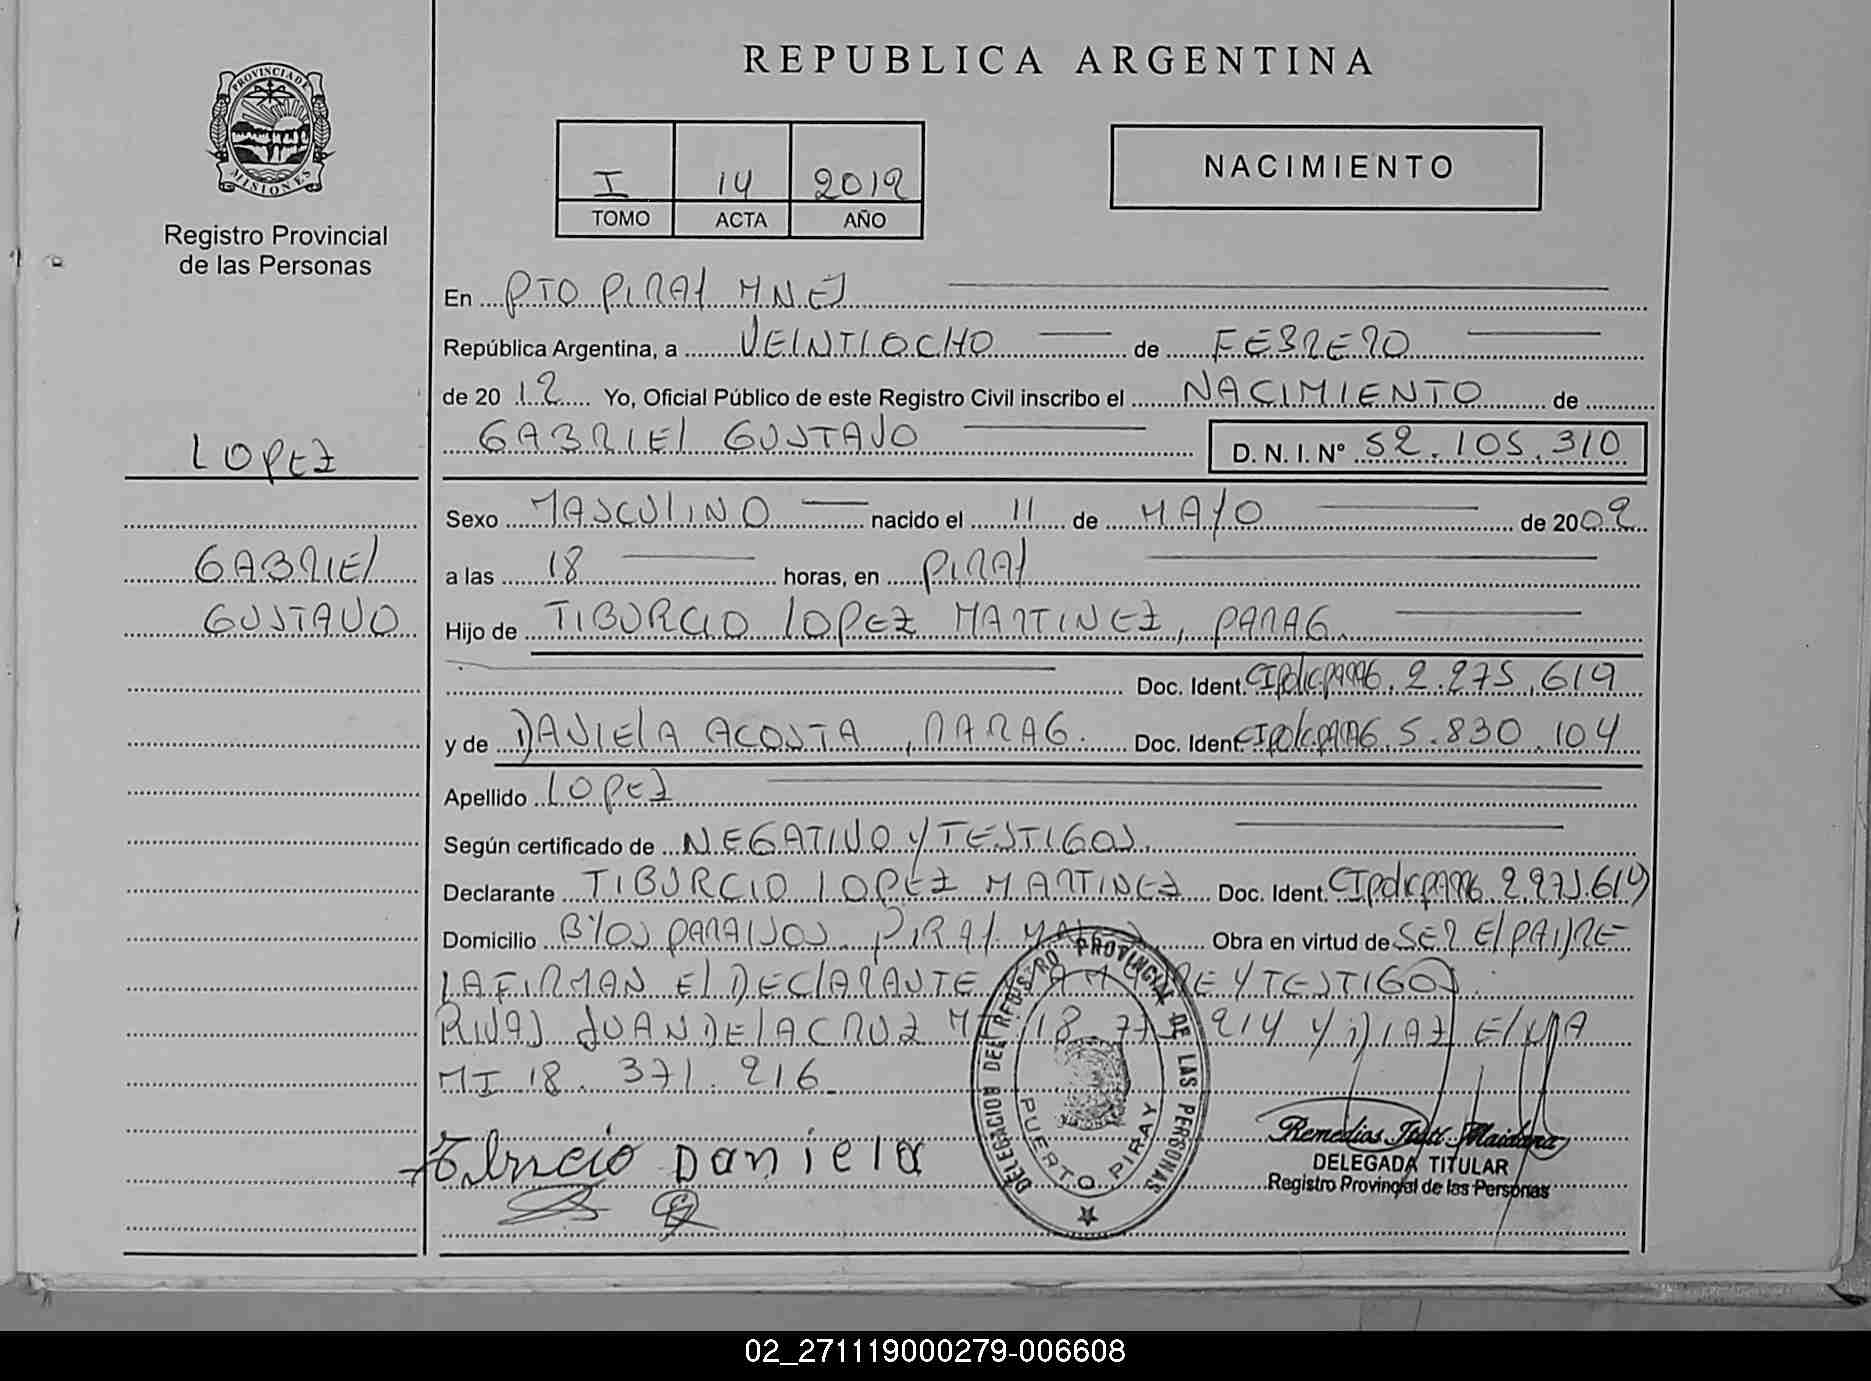 REPUBLICA ARGENTINA
PROVINCIA DE MISIONES
Registro Provincial
de las Personas
I 14 2012
TOMO ACTA AÑO
NACIMIENTO
En PTO PIRAY MNES
República Argentina, a VEINTIOCHO de FEBRERO
de 2012 Yo, Oficial Público de este Registro Civil inscribo el NACIMIENTO de
LOPEZ
GABRIEL GUSTAVO D. N. I. Nº 52.105.310
Sexo MASCULINO nacido el 11 de MAYO de 2002
GABRIEL
a las 18 horas, en PIRAY
GUSTAVO
Hijo de TIBURCIO LOPEZ MARTINEZ, PARAG.
Doc. Ident. CIPolicPARAG. 2.275.619
y de DANIELA ACOSTA, PARAG. Doc. Ident CIPolicPARAG. 5.830.104
Apellido LOPEZ
Según certificado de NEGATIVO Y TESTIGOS.
Declarante TIBURCIO LOPEZ MARTINEZ Doc. Ident. CIPolicPARAG 2.275.619
Domicilio BºLOS PARAISOS. PIRAY Obra en virtud de SER EL PADRE
LA FIRMAN EL DECLARANTE LA MADRE Y TESTIGOS.
RIVAS JUAN DE LA CRUZ MI 18 214 Y DIAZ ELVA
MI 18.371.216
Daniela
DELEGACION DEL REGISTRO PROVINCIAL DE LAS PERSONAS
PUERTO PIRAY
MISIONES
Remedios Maidana
DELEGADA TITULAR
Registro Provincial de las Personas
02_271119000279-006608